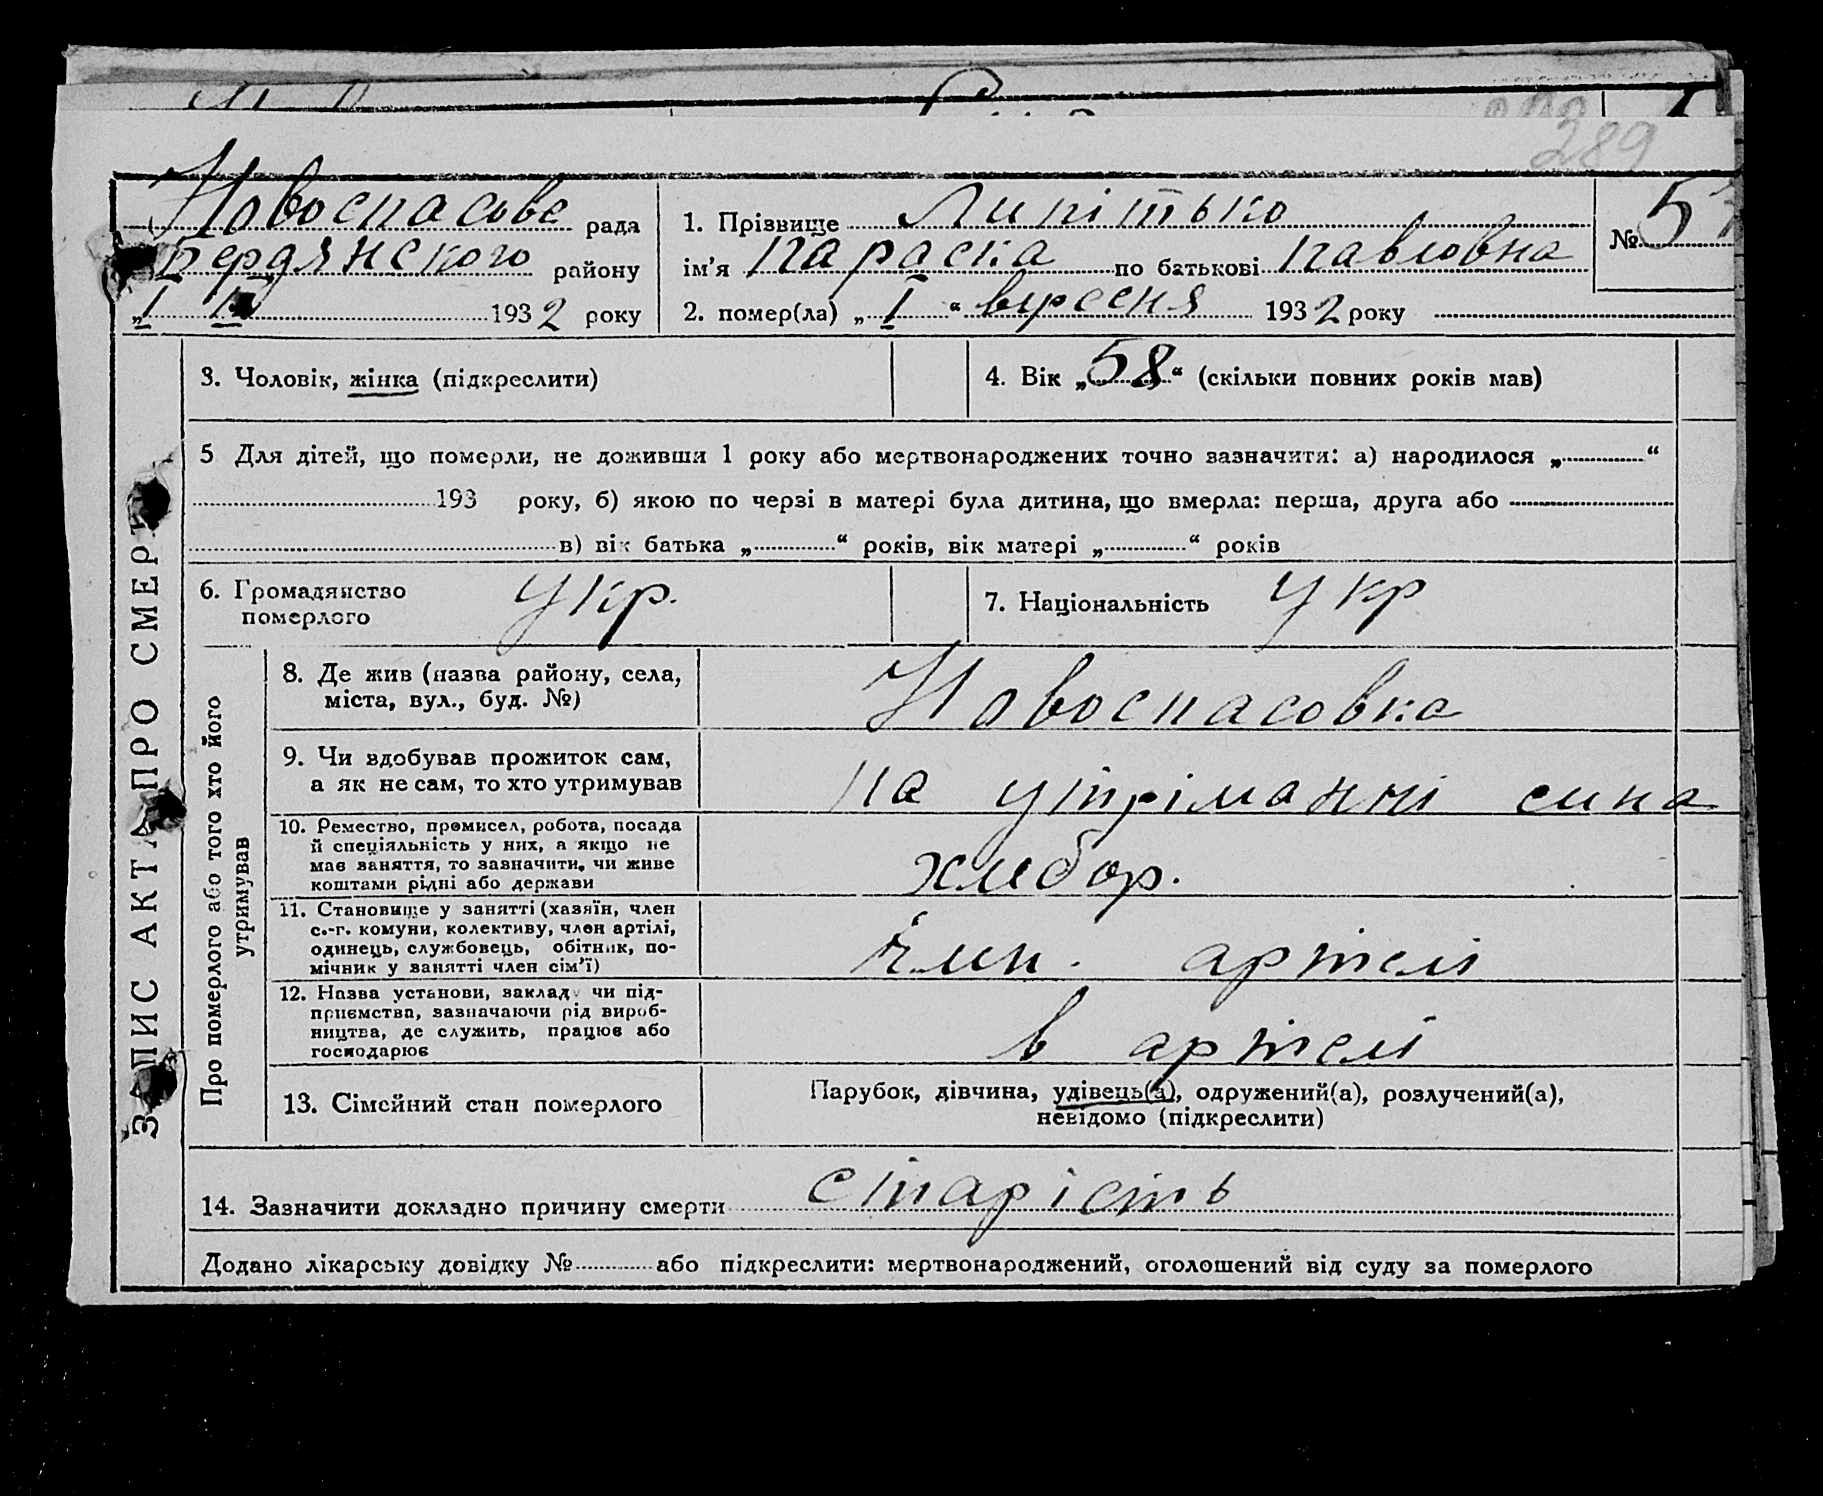 389
Новоспасове рада
Бердянского району
„I IX 1932 року
1. Прізвище Липітько
ім'я Параска по батькові Павловна
2. помер(ла) „I“ вересня 1932 року
№ 5
ЗАПИС АКТА ПРО СМЕРТЬ
3. Чоловік, жінка (підкреслити)
4. Вік „58“ (скільки повних років мав)
5 Для дітей, що померли, не доживши 1 року або мертвонароджених точно зазначити: а) народилося „ “
193 року, б) якою по черзі в матері була дитина, що вмерла: перша, друга або
в) вік батька „ “ років, вік матері „ “ років
6. Громадянство
померлого
укр.
7. Національність укр
Про померлого або того хто його
утримував
8. Де жив (назва району, села,
міста, вул., буд. №)
Новоспасовка
9. Чи здобував прожиток сам,
а як не сам, то хто утримував
на утріманні сина
10. Ремество, промисел, робота, посада
й спеціяльність у них, а якщо не
має заняття, то зазначити, чи живе
коштами рідні або держави
хлибор.
11. Становище у занятті (хазяїн, член
с.-г. комуни, колективу, член артілі,
одинець, службовець, обітник, по-
мічник у занятті член сім'ї)
член. артелі
12. Назва установи, закладу чи під-
приємства, зазначаючи рід вироб-
ництва, де служить, працює або
господарює
в артелі
13. Сімейний стан померлого
Парубок, дівчина, удівець(а), одружений(а), розлучений(а),
невідомо (підкреслити)
14. Зазначити докладно причину смерти старість
Додано лікарську довідку № або підкреслити: мертвонароджений, оголошений від суду за померлого